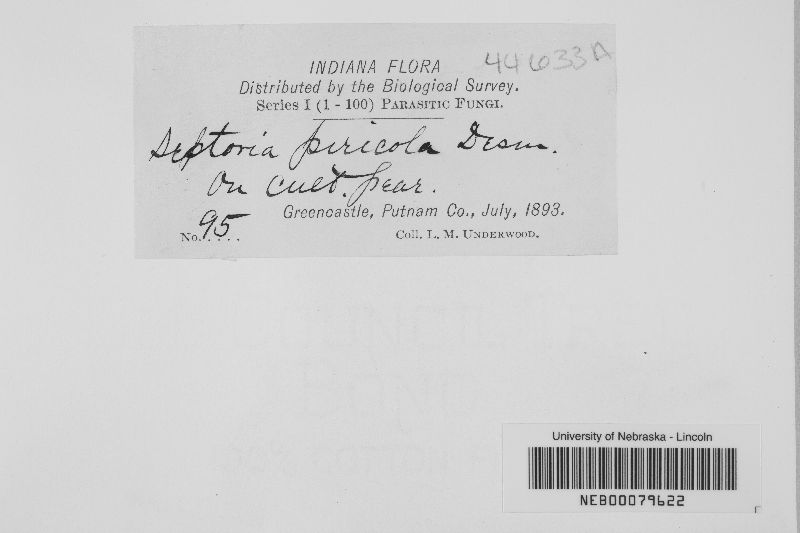 INDIANA FLORA 44633A
Distributed by the Biological Survey.
Series I (1 - 100) PARASITIC FUNGI.
Septoria piricola Desm.
On cult. pear.
Greencastle, Putnam Co., July, 1893.
No. 95 Coll. L. M. UNDERWOOD.
COUNCIL TREE
BOND
University of Nebraska - Lincoln
NEB00079622